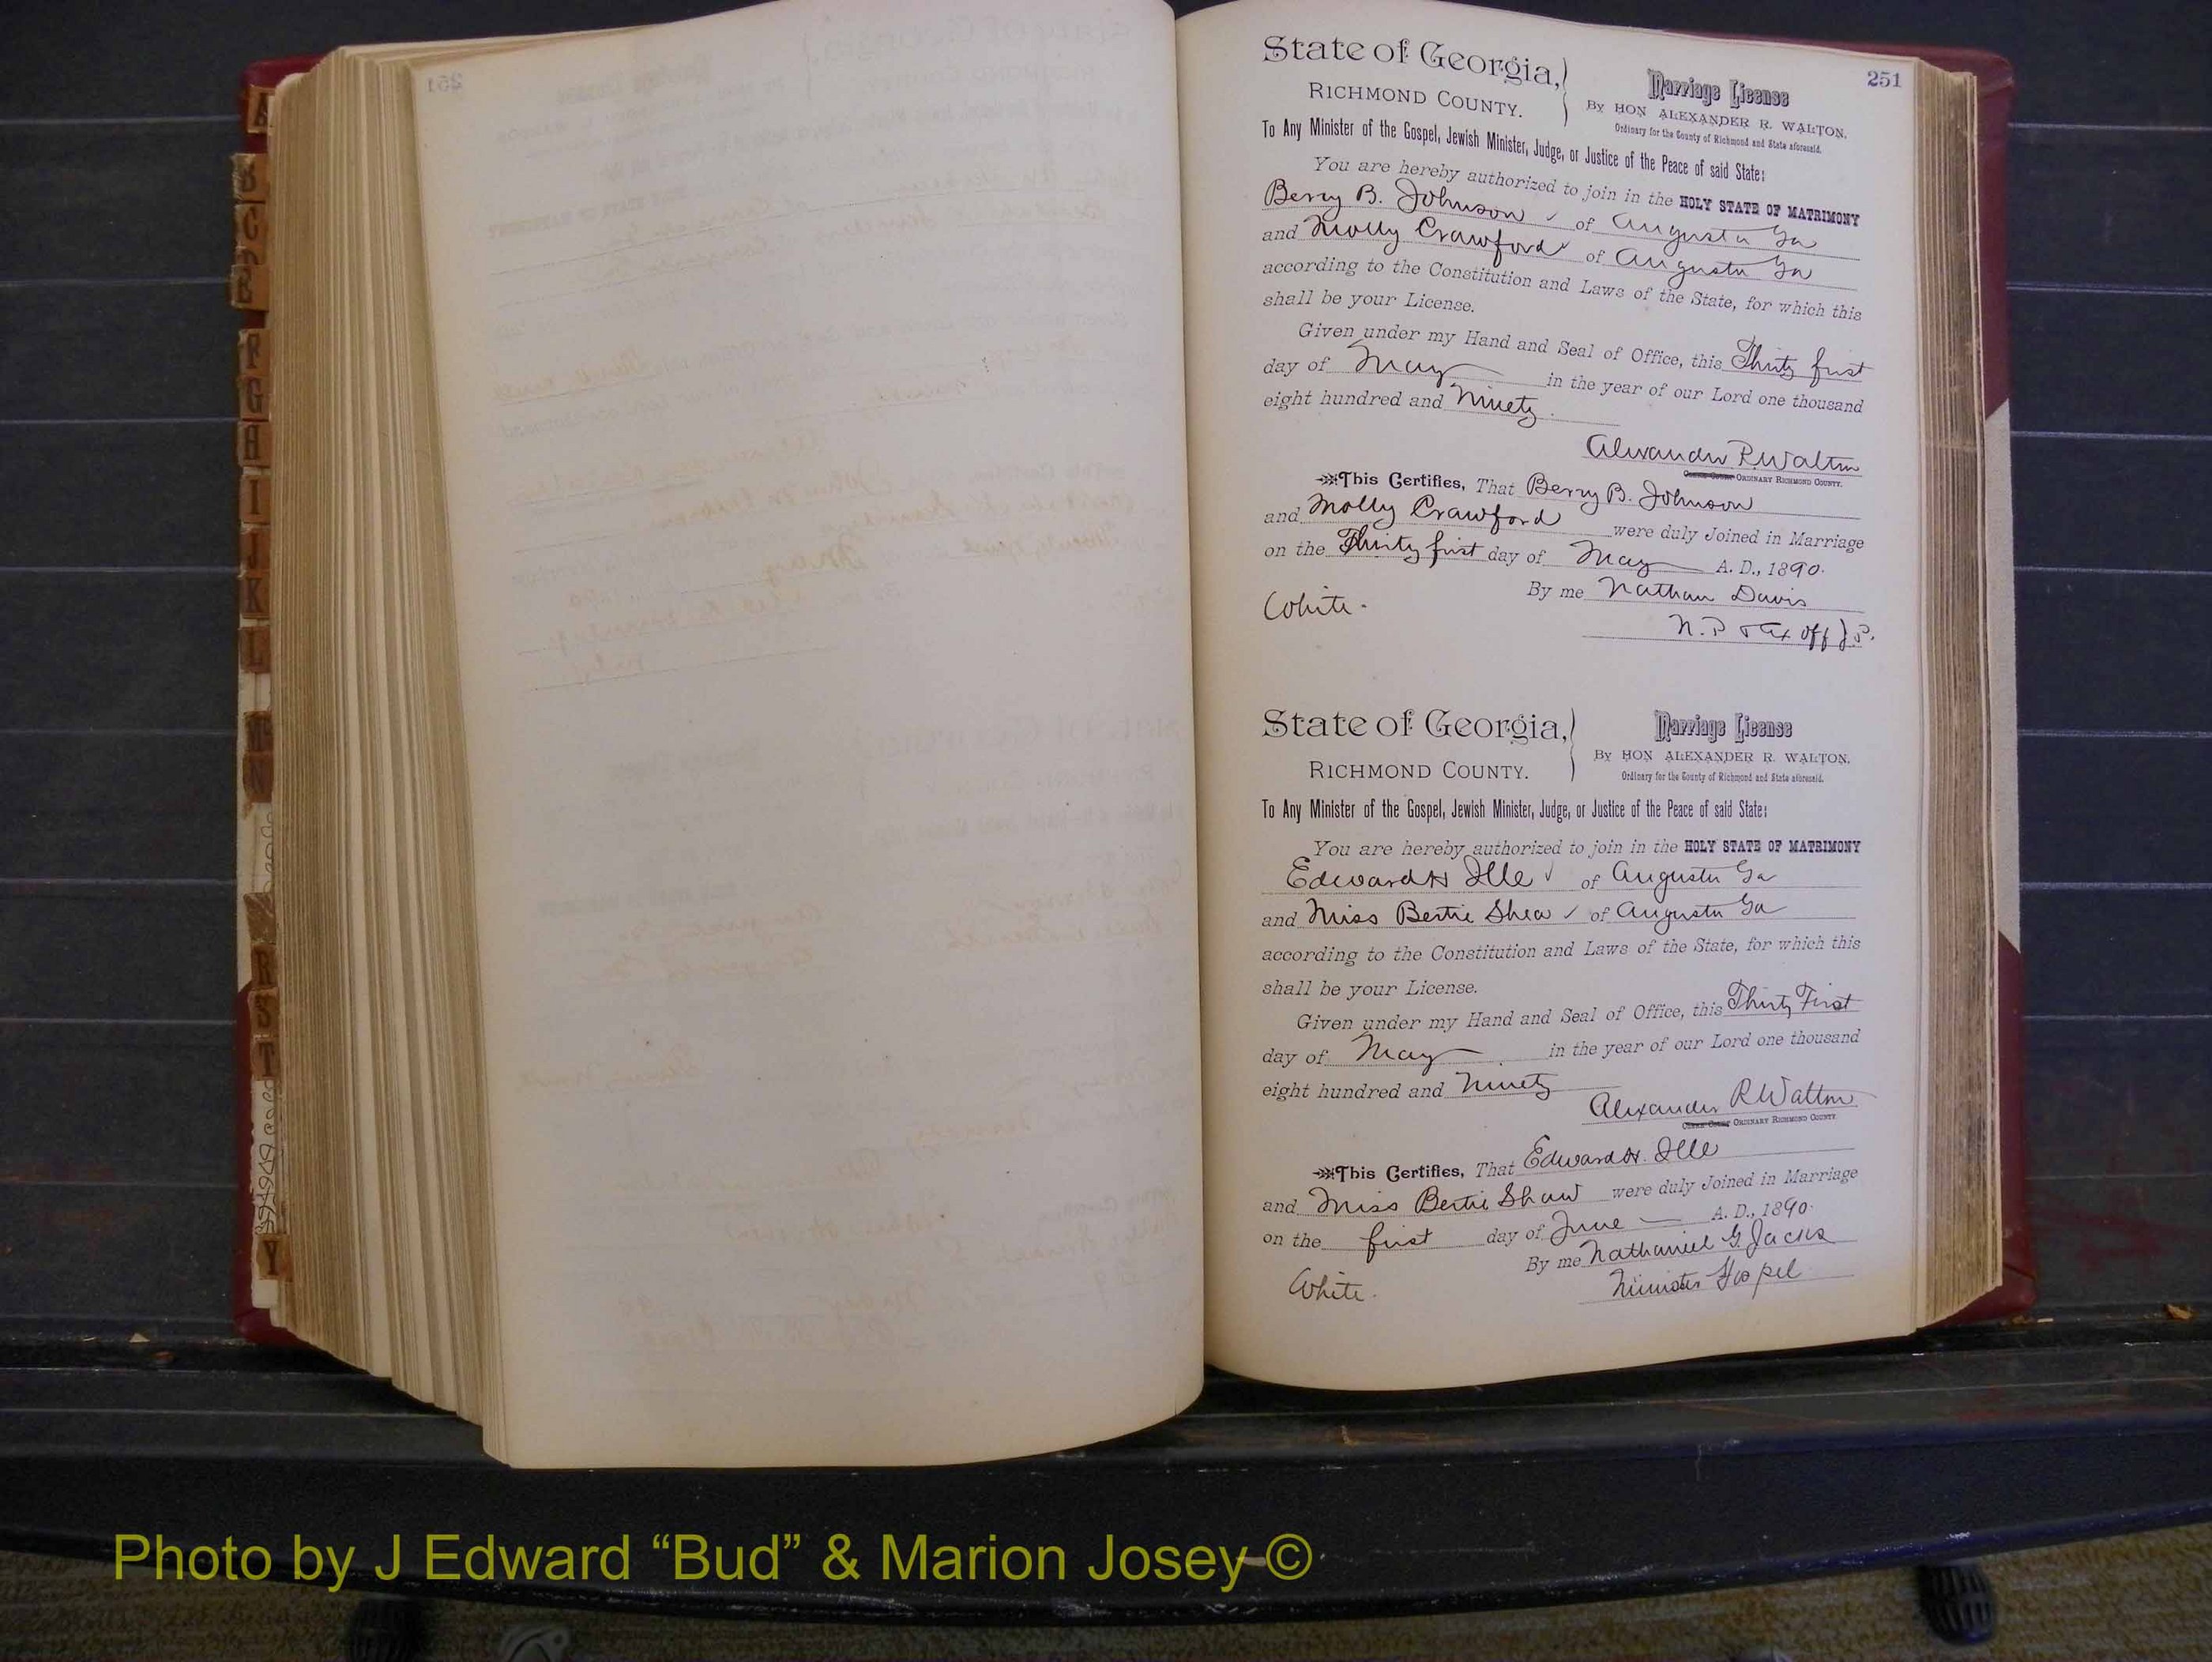 251
State of Georgia,
RICHMOND COUNTY.
Marriage License
By HON ALEXANDER R. WALTON,
Ordinary for the County of Richmond and State aforesaid.
To Any Minister of the Gospel, Jewish Minister, Judge, or Justice of the Peace of said State:
You are hereby authorized to join in the HOLY STATE OF MATRIMONY
Berry B. Johnson of Augusta Ga
and Molly Crawford of Augusta Ga
according to the Constitution and Laws of the State, for which this
shall be your License.
Given under my Hand and Seal of Office, this Thirty first
day of May in the year of our Lord one thousand
eight hundred and Ninety.
Alexander R Walton
ORDINARY RICHMOND COUNTY.
This Certifies, That Berry B. Johnson
and Molly Crawford were duly Joined in Marriage
on the Thirty first day of May A. D., 1890.
By me Nathan Davis
White.
N. P & Ex off J. P.
State of Georgia,
RICHMOND COUNTY.
Marriage License
By HON ALEXANDER R. WALTON,
Ordinary for the County of Richmond and State aforesaid.
To Any Minister of the Gospel, Jewish Minister, Judge, or Justice of the Peace of said State:
You are hereby authorized to join in the HOLY STATE OF MATRIMONY
Edward H Ille of Augusta Ga
and Miss Bertie Shea of Augusta Ga
according to the Constitution and Laws of the State, for which this
shall be your License.
Given under my Hand and Seal of Office, this Thirty First
day of May in the year of our Lord one thousand
eight hundred and Ninety
Alexander R Walton
ORDINARY RICHMOND COUNTY.
This Certifies, That Edward H. Ille
and Miss Bertie Shaw were duly Joined in Marriage
on the first day of June A. D., 1890.
By me Nathaniel G. Jacks
White.
Minister Gospel
A
B
C
D
E
F
G
H
I
J
K
L
Mc
N
R
S
T
Y
Photo by J Edward “Bud” & Marion Josey ©